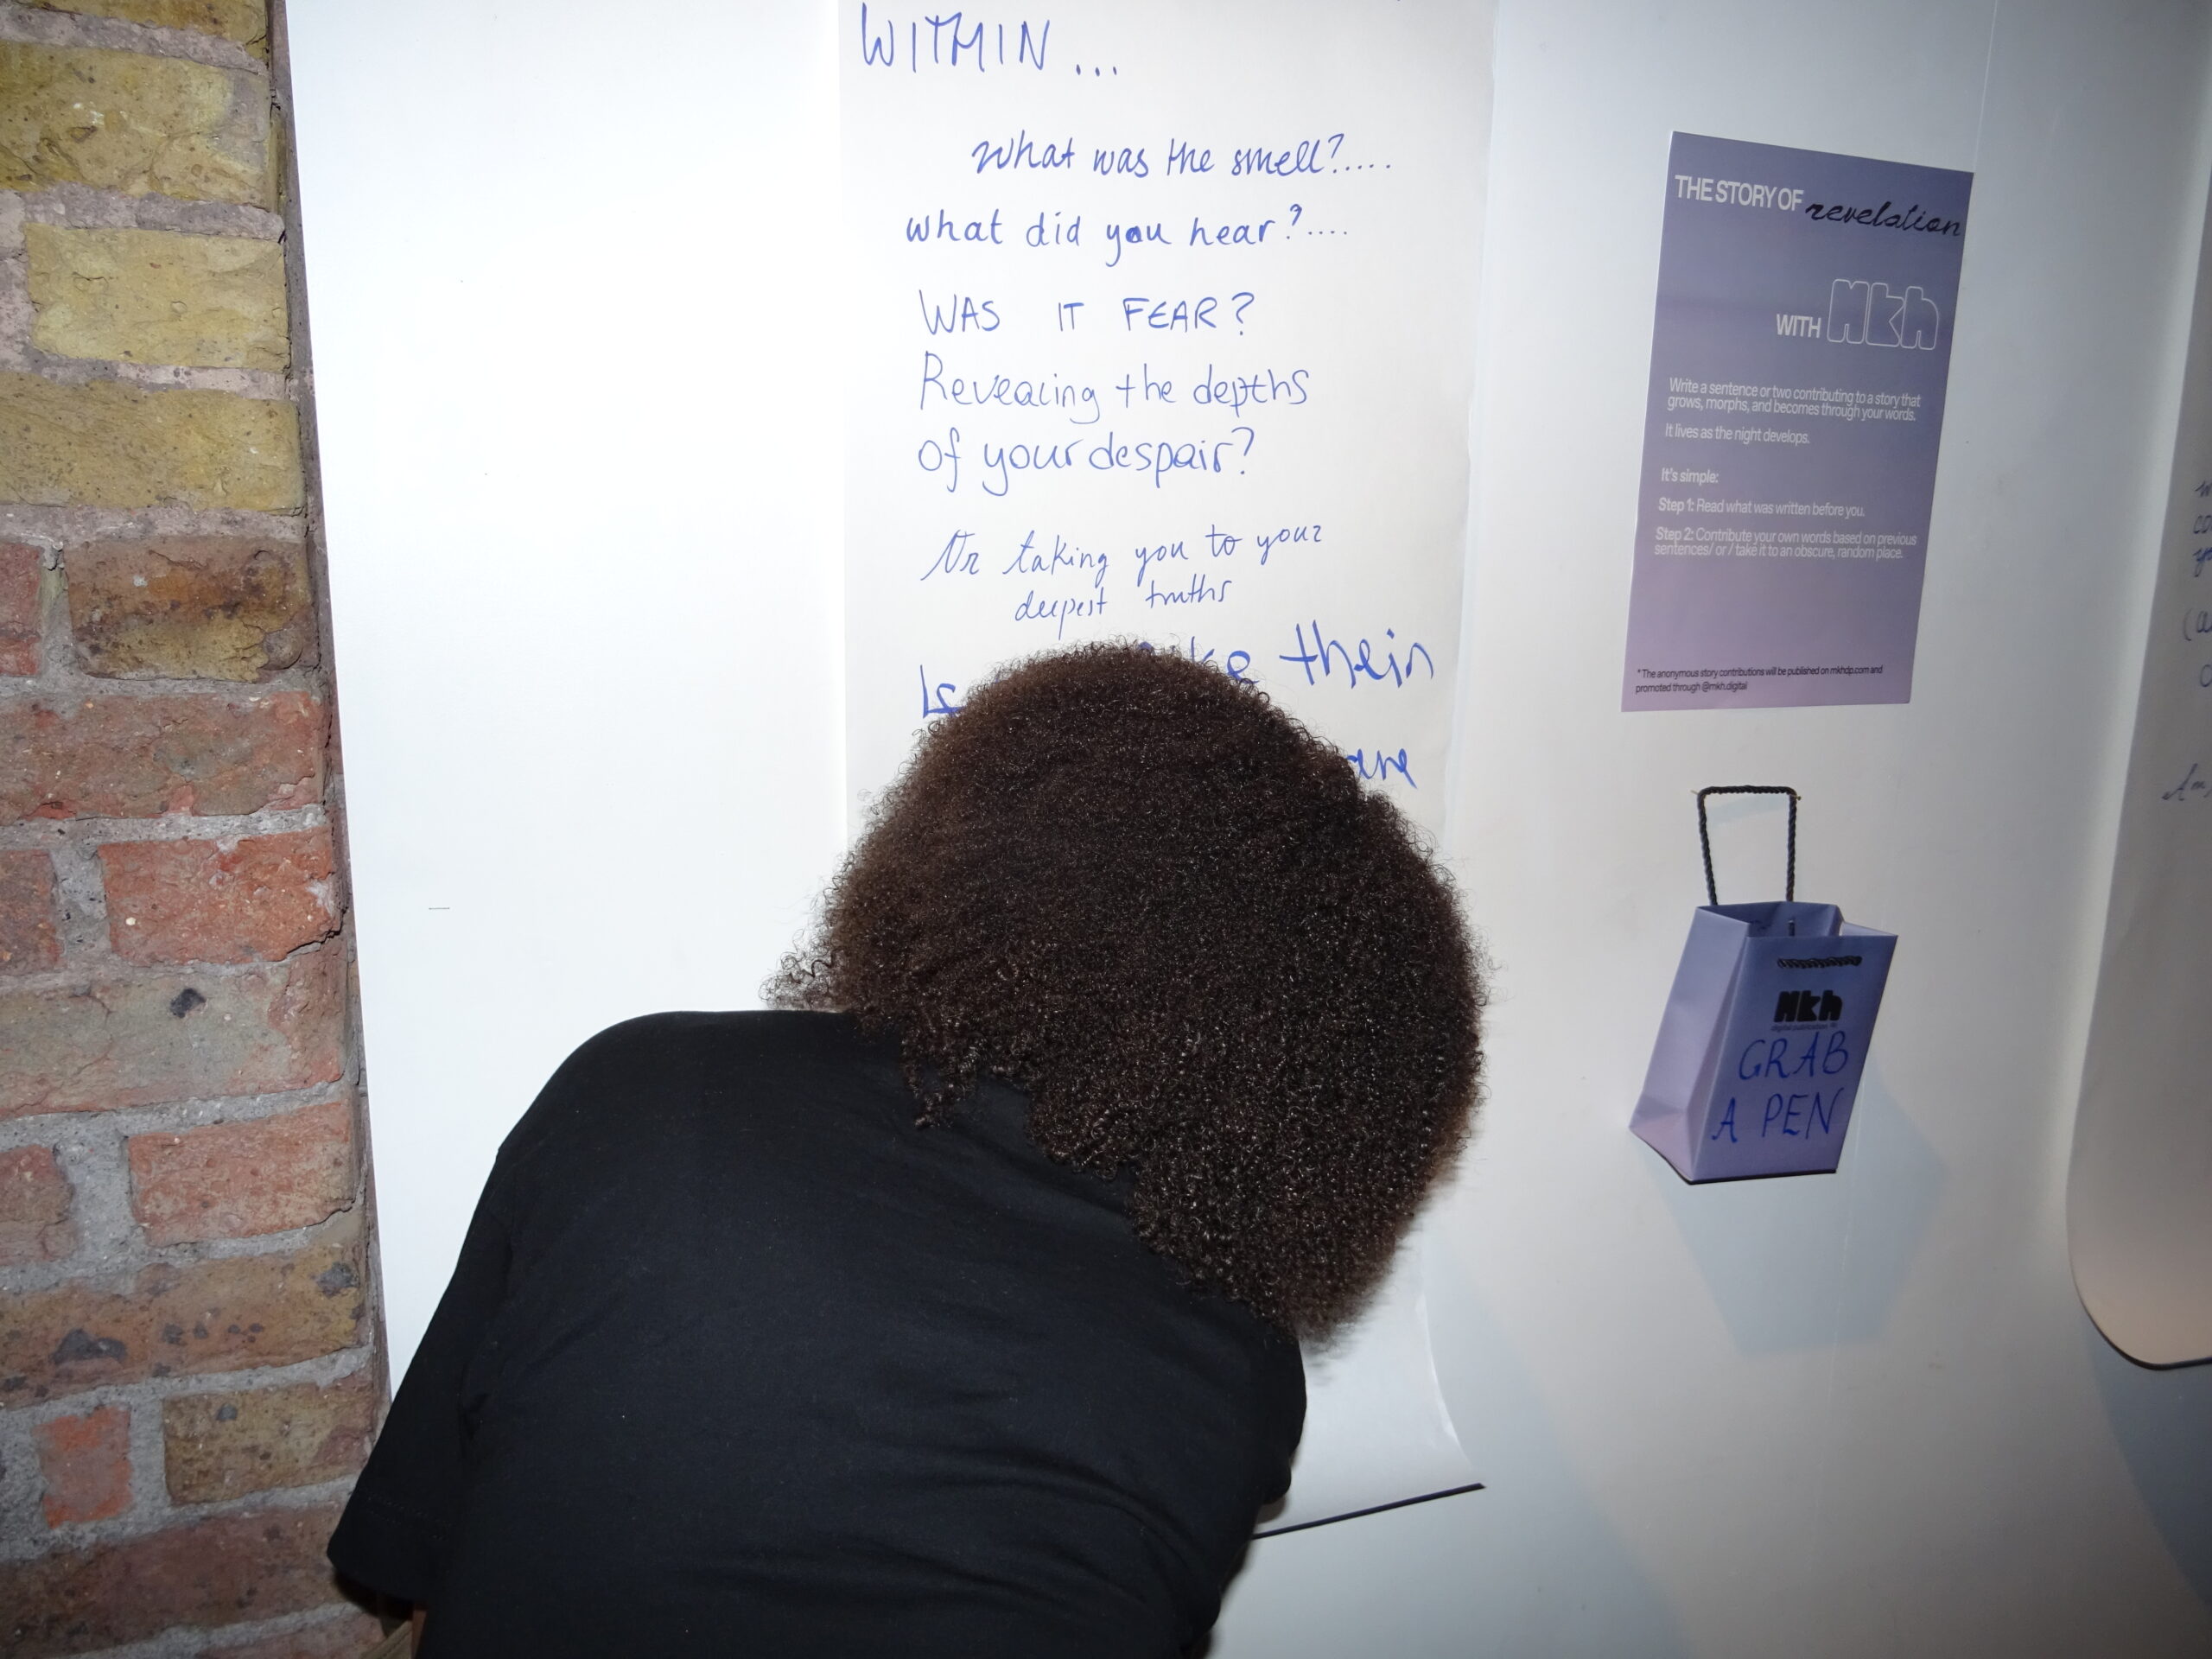 WITHIN ...
what was the smell?....
what did you hear?....
WAS IT FEAR?
Revealing the depths
of your despair?
Or taking you to your
deepest truths
their
are
THE STORY OF revelation
WITH Mkh
Write a sentence or two contributing to a story that
grows, morphs, and becomes through your words.
It lives as the night develops.
It's simple:
Step 1: Read what was written before you.
Step 2: Contribute your own words based on previous
sentences/ or / take it to an obscure, random place.
* The anonymous story contributions will be published on mkhdp.com and
promoted through @mkh.digital
Mkh
digital publication
GRAB
A PEN